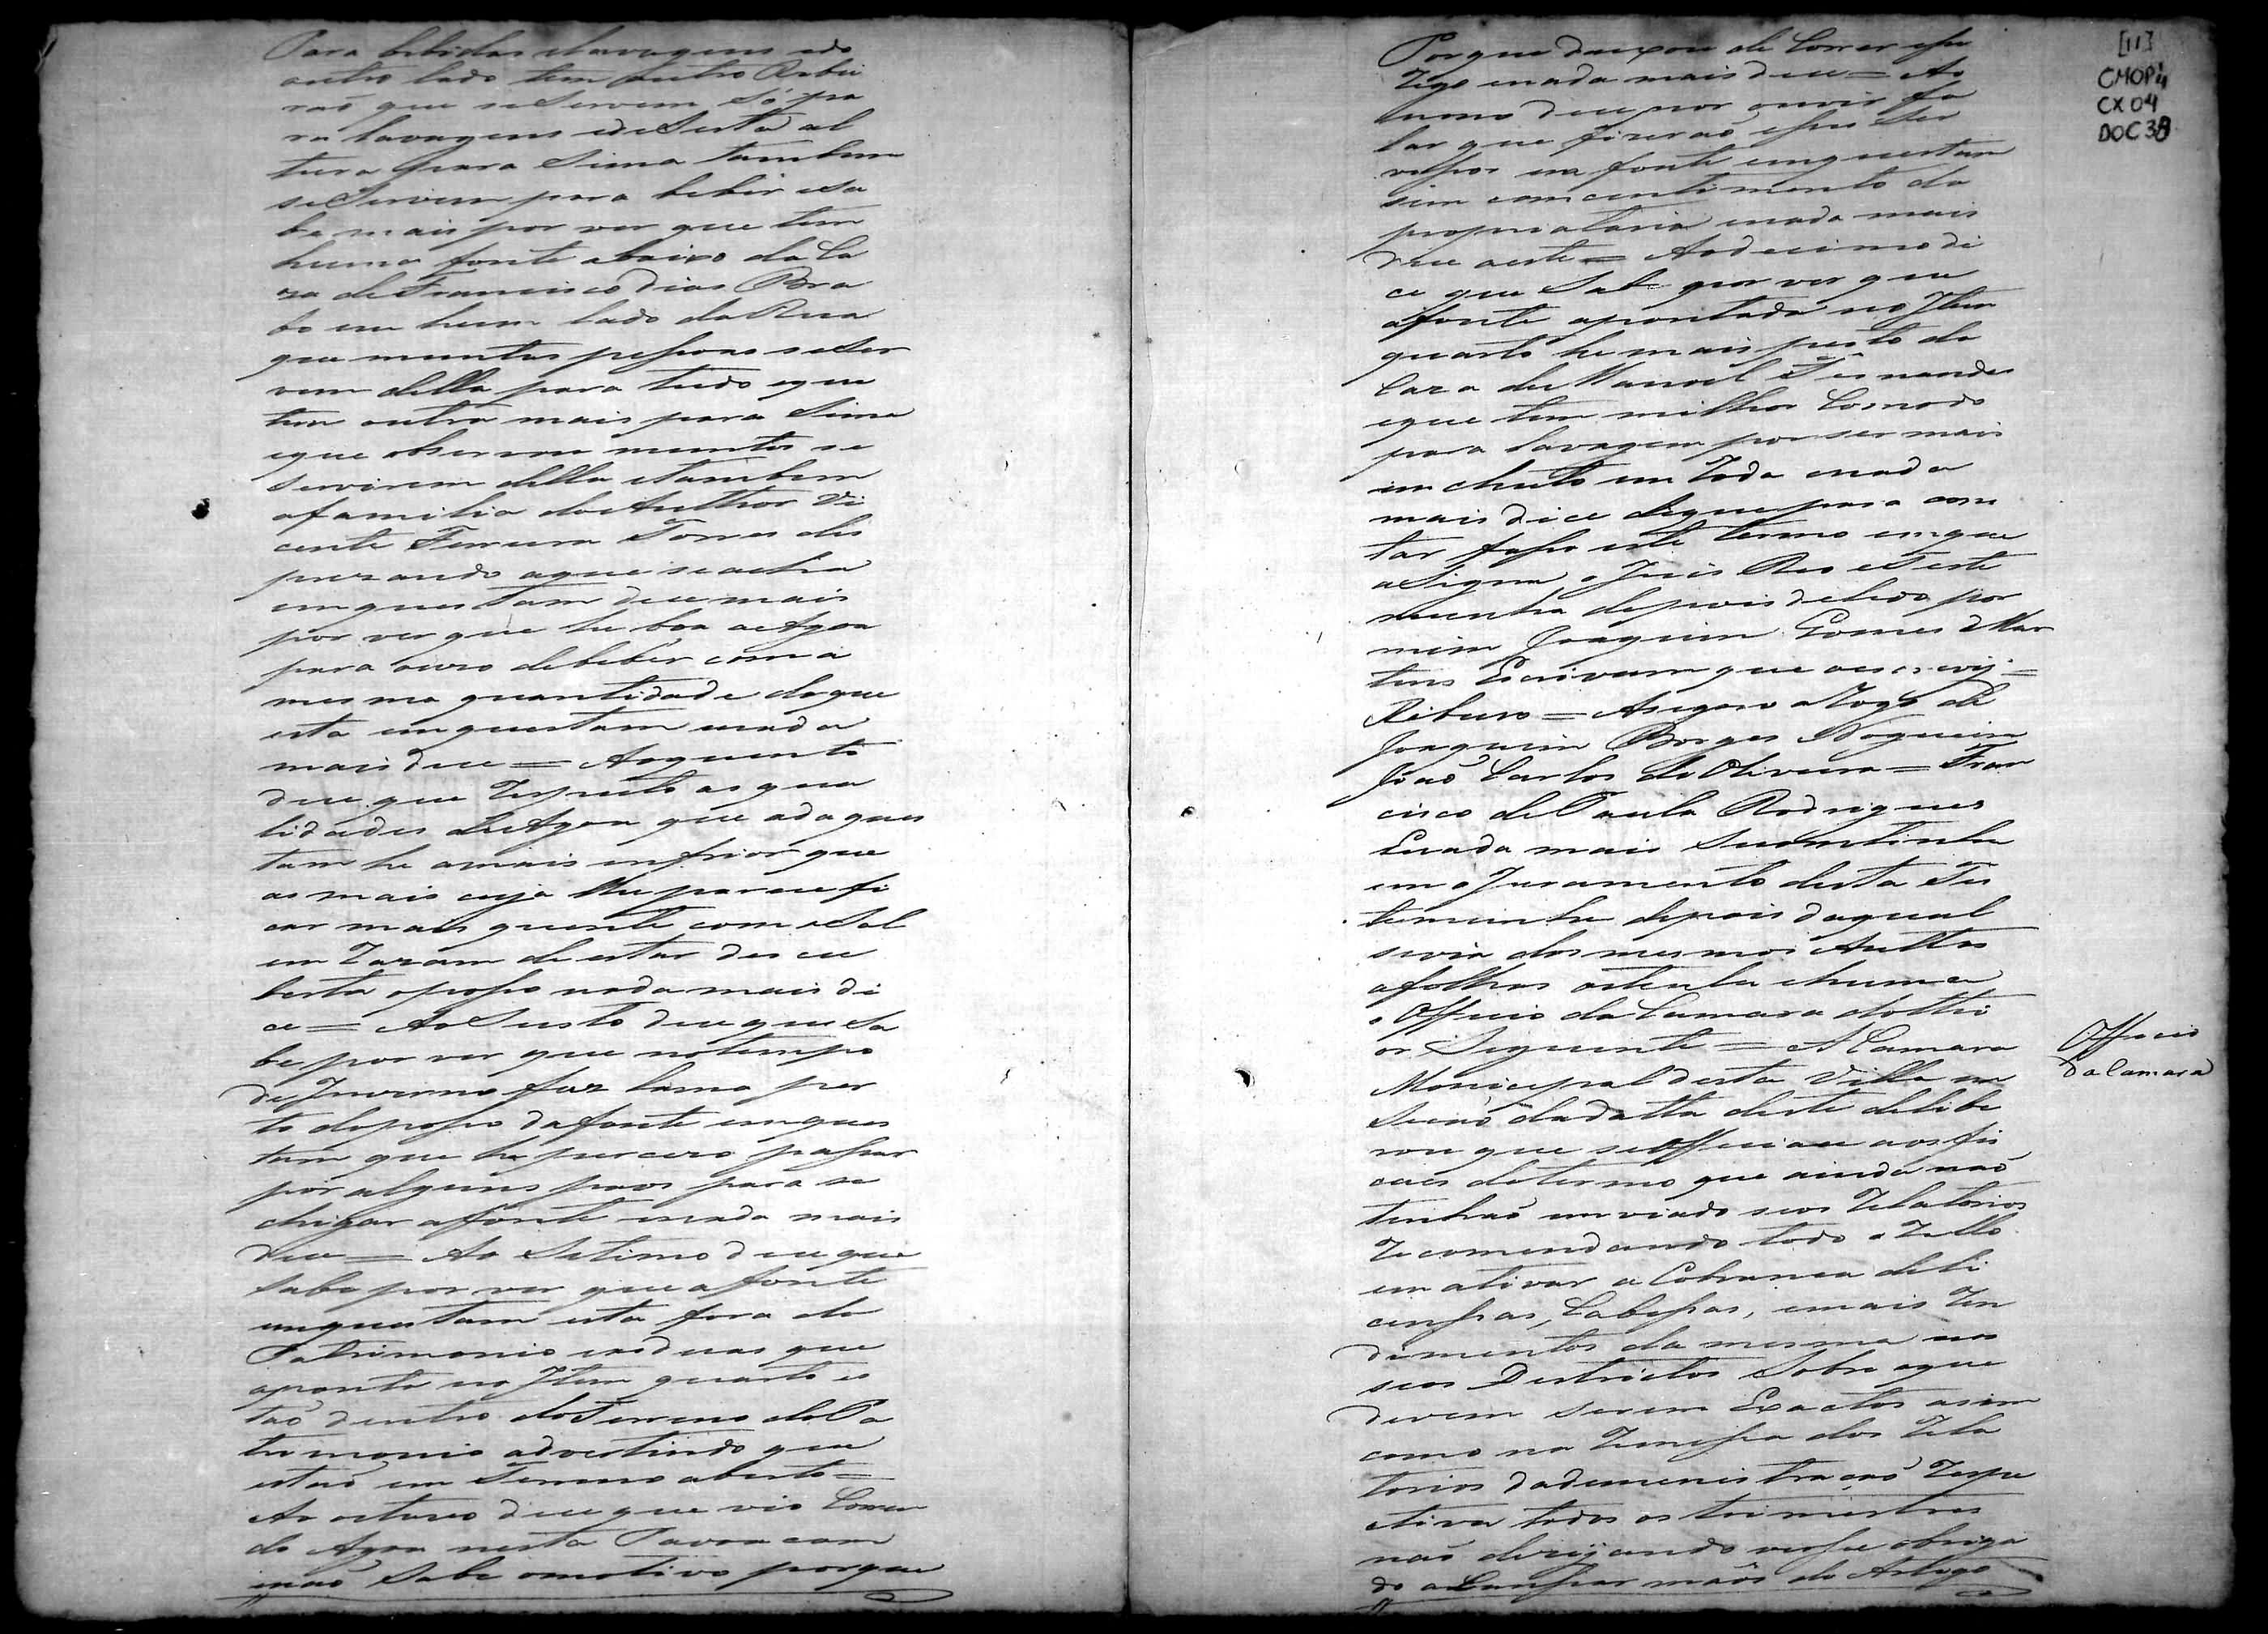 Para bebidas elavagens edo
outro lado tem outro Ribei
raõ que seServem só pa
ra lavagens edeSesta al
tura para Sima tambem
seServem para beber esa
be mais por ver que tem
huma fonte abaixo da Ca
za deFrancisco Dias Bra
bo em hum lado da Rua
que muntas pessoas seSer
vem della para tudo eque
tem outra mais para Sima
eque observou muntos se
servirem della etambem
afamilia doAuthor Vi
cente Ferreira Torres des
prezando aque seacha
emquestam dice mais
por ver que he boa aeAgoa
para ouzo debeber coma
mesma quantidade daque
esta emquestam enada
mais dice = Aoquinto
dice que Respeito as qua
lidades deAgoa que adaques
tam he amais enfrior que
as mais cuja lhe parece fi
car mais quente com oSol
em Razam de estar descu
berta oposso nada mais di
ce = AoSesto dice que Sa
be por ver que notempo
deInverno faz lama per
to doposso dafonte emques
tam que he percizo passar
por alguns paos para se
chegar afonte enada mais
dice = Ao Setimo dice que
Sabe por ver que afonte
emquestam esta fora do
Patrimonio easduas que
aponta no Item quarto es
taõ dentro doTerreno doPa
trimonio advertindo que
estaõ em Terreno aberto =
Ao oitavo dice que vio Corren
do Agoa nesta Povoa com
enaõ Sabe omotivo porque
Porque deixou de Correr esse
Rego enada mais dice = Ao
nono dice por ouvir fa
lar que fizeraõ esses Ser
vissos na fonte emquestam
sem comcentimento da
proprietaria enada mais
dice aeste = Aodecimo di
ce que Sabe por ver que
afonte apontada no Item
quarto he mais perto da
Caza deManoel Fernandes
eque tem milhor Comodo
para lavagem por ser mais
em chuto em Roda enada
mais dice eque para com
tar fasso este termo emque
aSigna oJuis Reo eTeste
munha depois delido por
mim Joaquim Gomes Mar
tins Escrivam que oescrevy =
Ribeiro = Asigno aRogo de
Joaquim Borges Nogueira
Joaõ Carlos deOliveira = Fran
cisco dePaula Rodrigues
Enada mais Secontinha
em oJuramento desta Tes
temunha depois daqual
sevia dos mesmos Auttos
afolhas oitenta ehuma
o Officio da Camara dotthe
or Siguinte = A Camara
Monicipal desta Villa em
Secaõ dadatta deste delibe
rou que seOfficiace aos fis
caes determo que ainda naõ
tenhaõ emviado seos Relatorios
Recomendando todo o Zello
em ativar a Cobranca deLi
censsas, Cabessas, emais Ren
dimentos da mesma nos
seos Destrictos Sobre oque
devem serem Exactos asim
como na Remessa dos Rela
torios daadmenistracaõ Respe
ctiva todos os trimestres
naõ deixando versse obriga
do aLanssar maõs do Artigo
Officio
da Camara
[11]
CMOP4
CX 04
DOC 3B